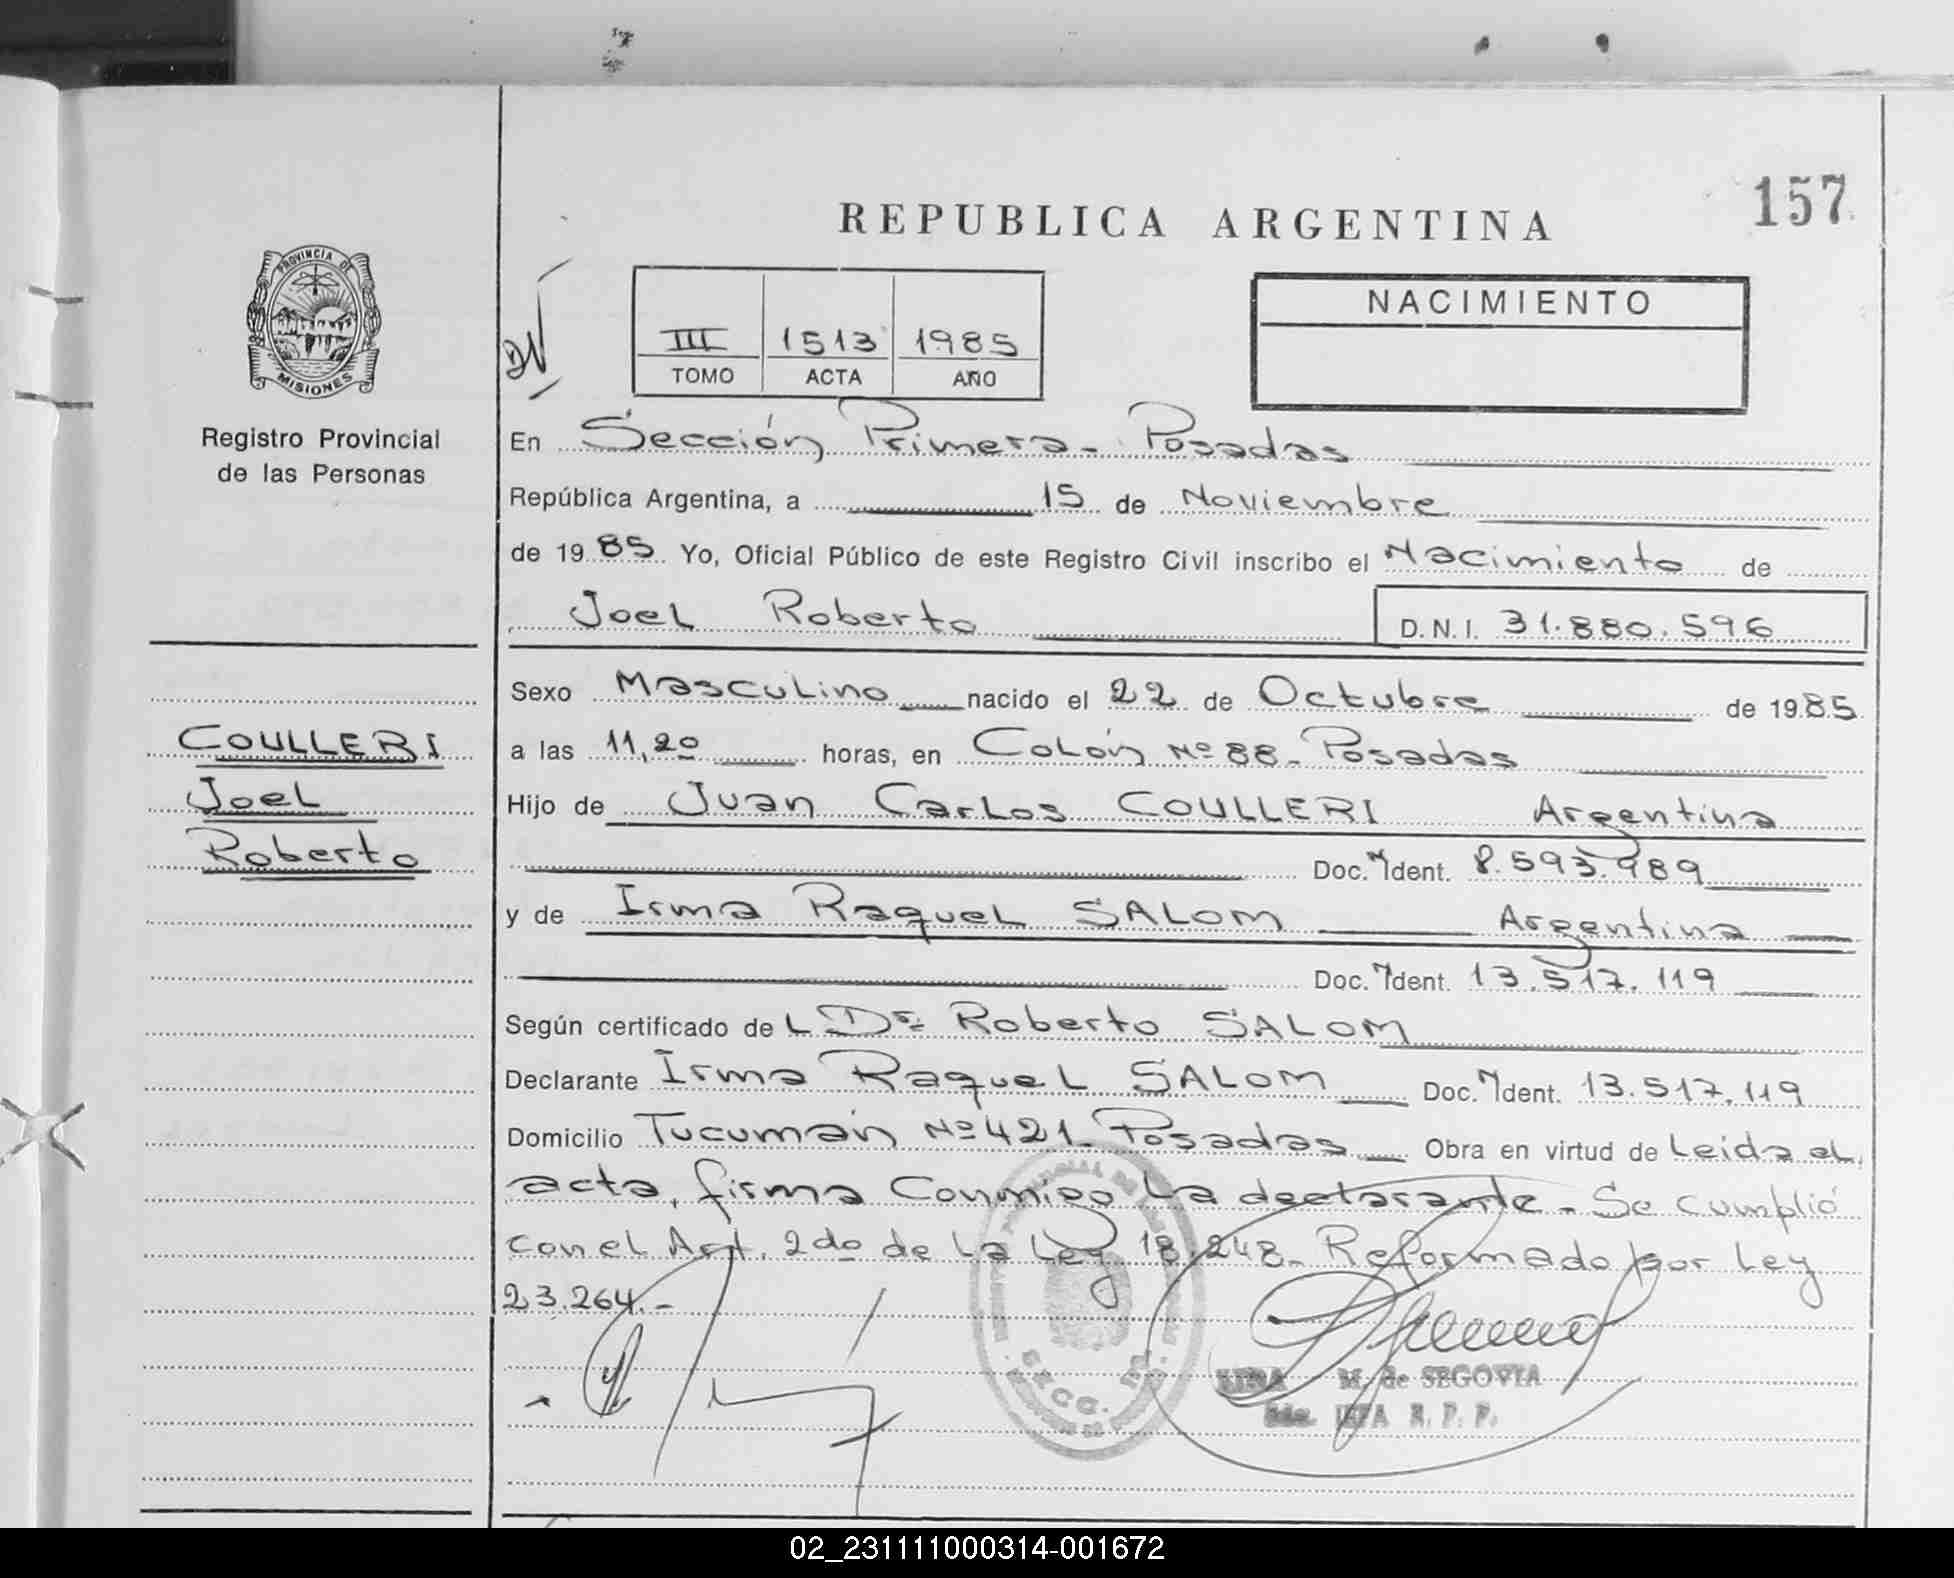 157
REPUBLICA ARGENTINA
PROVINCIA DE
MISIONES
Registro Provincial
de las Personas
III 1513 1985
TOMO ACTA AÑO
NACIMIENTO
En Sección Primera - Posadas
República Argentina, a 15 de Noviembre
de 1985 Yo, Oficial Público de este Registro Civil inscribo el Nacimiento de
Joel Roberto D.N.I. 31.880.596
Sexo Masculino nacido el 22 de Octubre de 1985
COULLERI
a las 11,20 horas, en Colón Nº 88 - Posadas
Joel
Hijo de Juan Carlos COULLERI Argentina
Roberto
Doc. Ident. 8.593.989
y de Irma Raquel SALOM Argentina
Doc. Ident. 13.517.119
Según certificado del Dr Roberto SALOM
Declarante Irma Raquel SALOM Doc. Ident. 13.517.119
Domicilio Tucumán Nº 421 - Posadas Obra en virtud de Leida el
acta, firma Conmigo la declarante - Se cumplió
con el Art. 2do de La Ley 18.248 - Reformado por Ley
23.264.-
LINA M. de SEGOVIA
JEFA R. P. P.
02_231111000314-001672